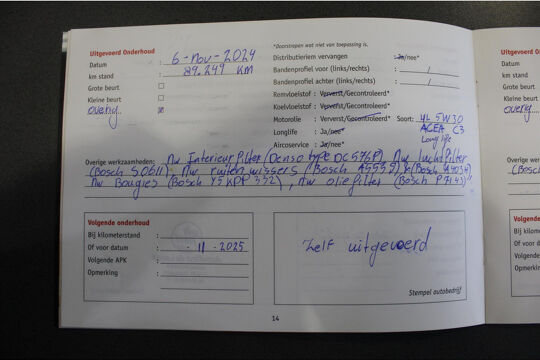 Uitgevoerd Onderhoud
Datum : 6-nov-2024
km stand : 89.249 KM
Grote beurt :
Kleine beurt :
overig
*Doorstrepen wat niet van toepassing is.
Distributieriem vervangen : Ja/nee*
Bandenprofiel voor (links/rechts) : /
Bandenprofiel achter (links/rechts) : /
Remvloeistof : Ververst/Gecontroleerd*
Koelvloeistof : Ververst/Gecontroleerd*
Motorolie : Ververst/Gecontroleerd* Soort: 4L 5W30
ACEA C3
Longlife : Ja/nee*
Long life
Aircoservice : Ja/nee*
Overige werkzaamheden: Nw Interieurfilter (Denso type DCF576P) Nw luchtfilter
(Bosch S0611) Nw ruitenwissers (Bosch
Nw Bougies (Bosch Y5KPP332), Nw oliefilter (Bosch P7143)
Volgende onderhoud
Bij kilometerstand :
Of voor datum : - 11 - 2025
Volgende APK :
Opmerking :
Zelf uitgevoerd
Stempel autobedrijf
14
Uitgevoerd
Datum
km stand
Grote beurt
Kleine beurt
overig
Overige werk
Volgend
Bij kilom
Of voor
Volgend
Opmerk